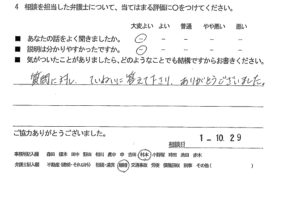 4 相談を担当した弁護士について、当てはまる評価に○をつけてください。
大変よい よい 普通 やや悪い 悪い
■ あなたの話をよく聞きましたか。
■ 説明は分かりやすかったですか。
■ 気がついたことがありましたら、どのようなことでも結構ですからお書きください。
質問に対し、ていねいに答えて下さり、ありがとうございました。
ご協力ありがとうございました。
相談日 1-10.29
事務局記入欄
弁護士記入欄 不動産 相続 離婚 交通事故 労働 刑事 その他( )